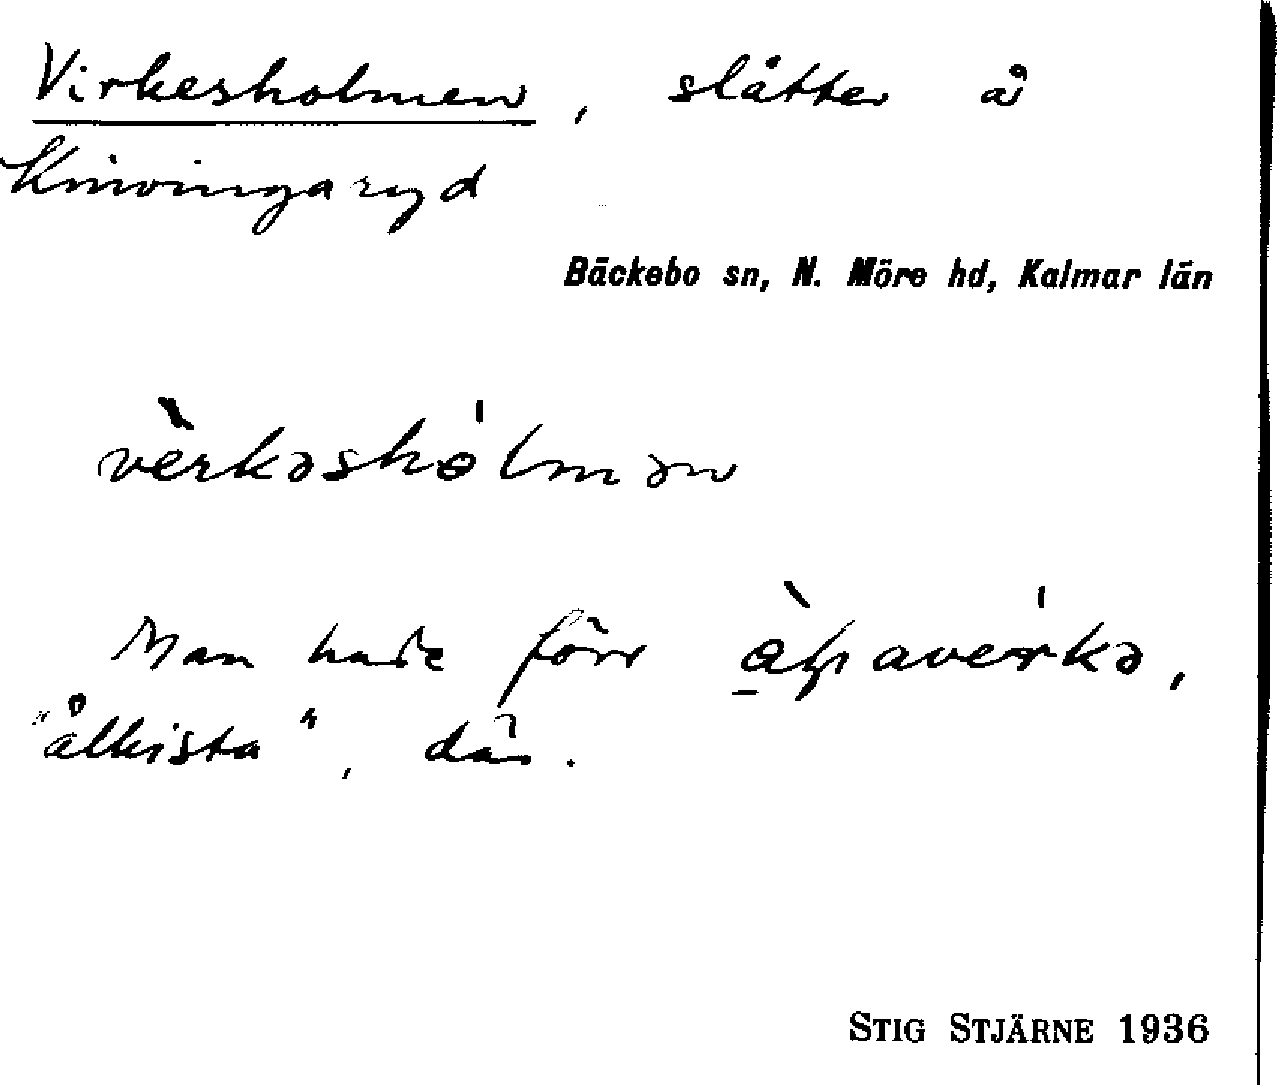 Virkesholmen, slåtter å
Knivingaryd
Bäckebo sn, N. Möre hd, Kalmar län
vè̀rkəshólmən
Man hade förr averkə,
"ålkista", där.
STIG STJÄRNE 1936